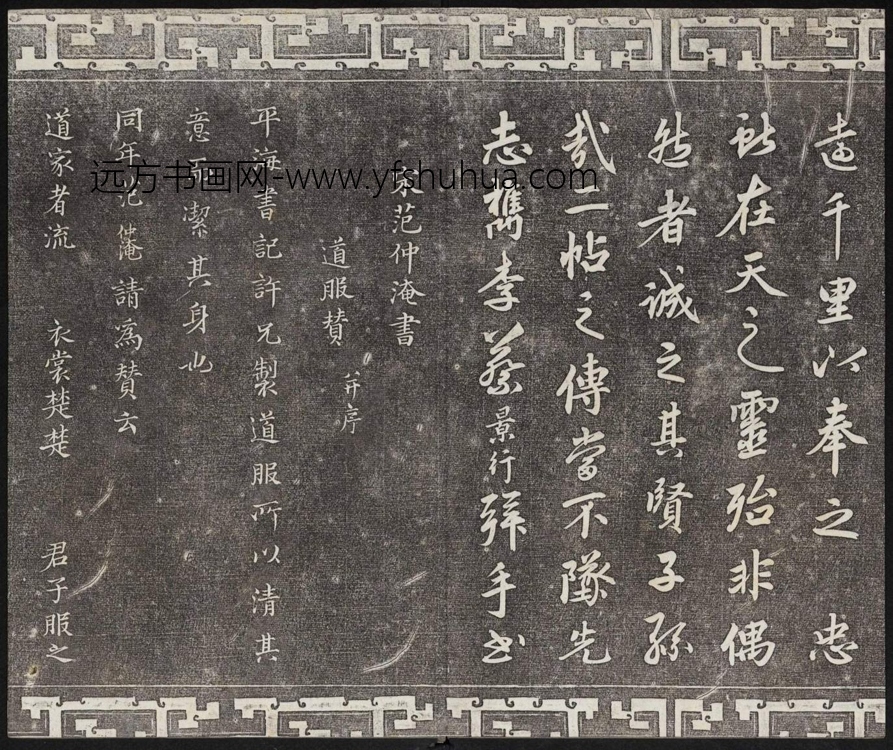 走千里以奉之 忠
獻在天之靈殆非偶
然者誠之其賢子孫
哉二帖之傳當不墜先
志檇李蔡景行拜手書
宋范仲淹書
道服贊 并序
平海書記許兄製道服所以清其
意而潔其身也
同年范仲淹請爲贊云
道家者流 衣裳楚楚 君子服之
远方书画网-www.yfshuhua.com